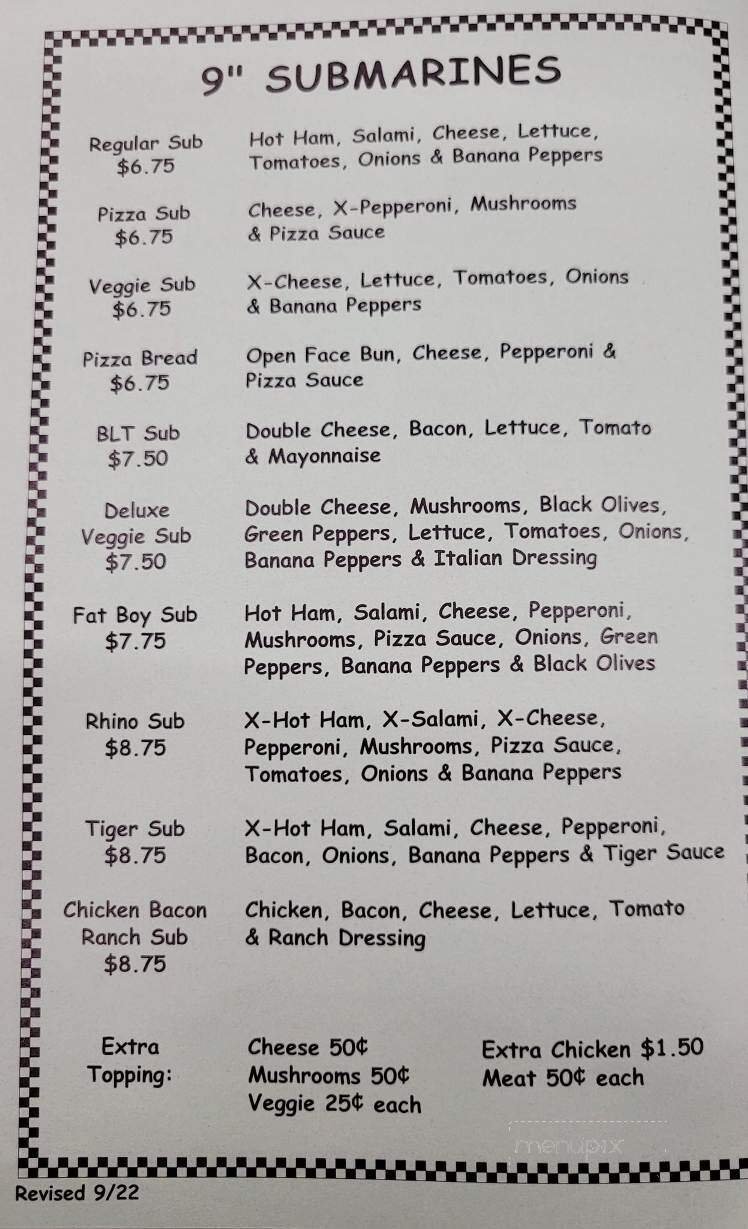 9" SUBMARINES
Regular Sub
$6.75
Hot Ham, Salami, Cheese, Lettuce,
Tomatoes, Onions & Banana Peppers
Pizza Sub
$6.75
Cheese, X-Pepperoni, Mushrooms
& Pizza Sauce
Veggie Sub
$6.75
X-Cheese, Lettuce, Tomatoes, Onions
& Banana Peppers
Pizza Bread
$6.75
Open Face Bun, Cheese, Pepperoni &
Pizza Sauce
BLT Sub
$7.50
Double Cheese, Bacon, Lettuce, Tomato
& Mayonnaise
Deluxe
Veggie Sub
$7.50
Double Cheese, Mushrooms, Black Olives,
Green Peppers, Lettuce, Tomatoes, Onions,
Banana Peppers & Italian Dressing
Fat Boy Sub
$7.75
Hot Ham, Salami, Cheese, Pepperoni,
Mushrooms, Pizza Sauce, Onions, Green
Peppers, Banana Peppers & Black Olives
Rhino Sub
$8.75
X-Hot Ham, X-Salami, X-Cheese,
Pepperoni, Mushrooms, Pizza Sauce,
Tomatoes, Onions & Banana Peppers
Tiger Sub
$8.75
X-Hot Ham, Salami, Cheese, Pepperoni,
Bacon, Onions, Banana Peppers & Tiger Sauce
Chicken Bacon
Ranch Sub
$8.75
Chicken, Bacon, Cheese, Lettuce, Tomato
& Ranch Dressing
Extra
Topping:
Cheese 50¢
Mushrooms 50¢
Veggie 25¢ each
Extra Chicken $1.50
Meat 50¢ each
menupix
Revised 9/22